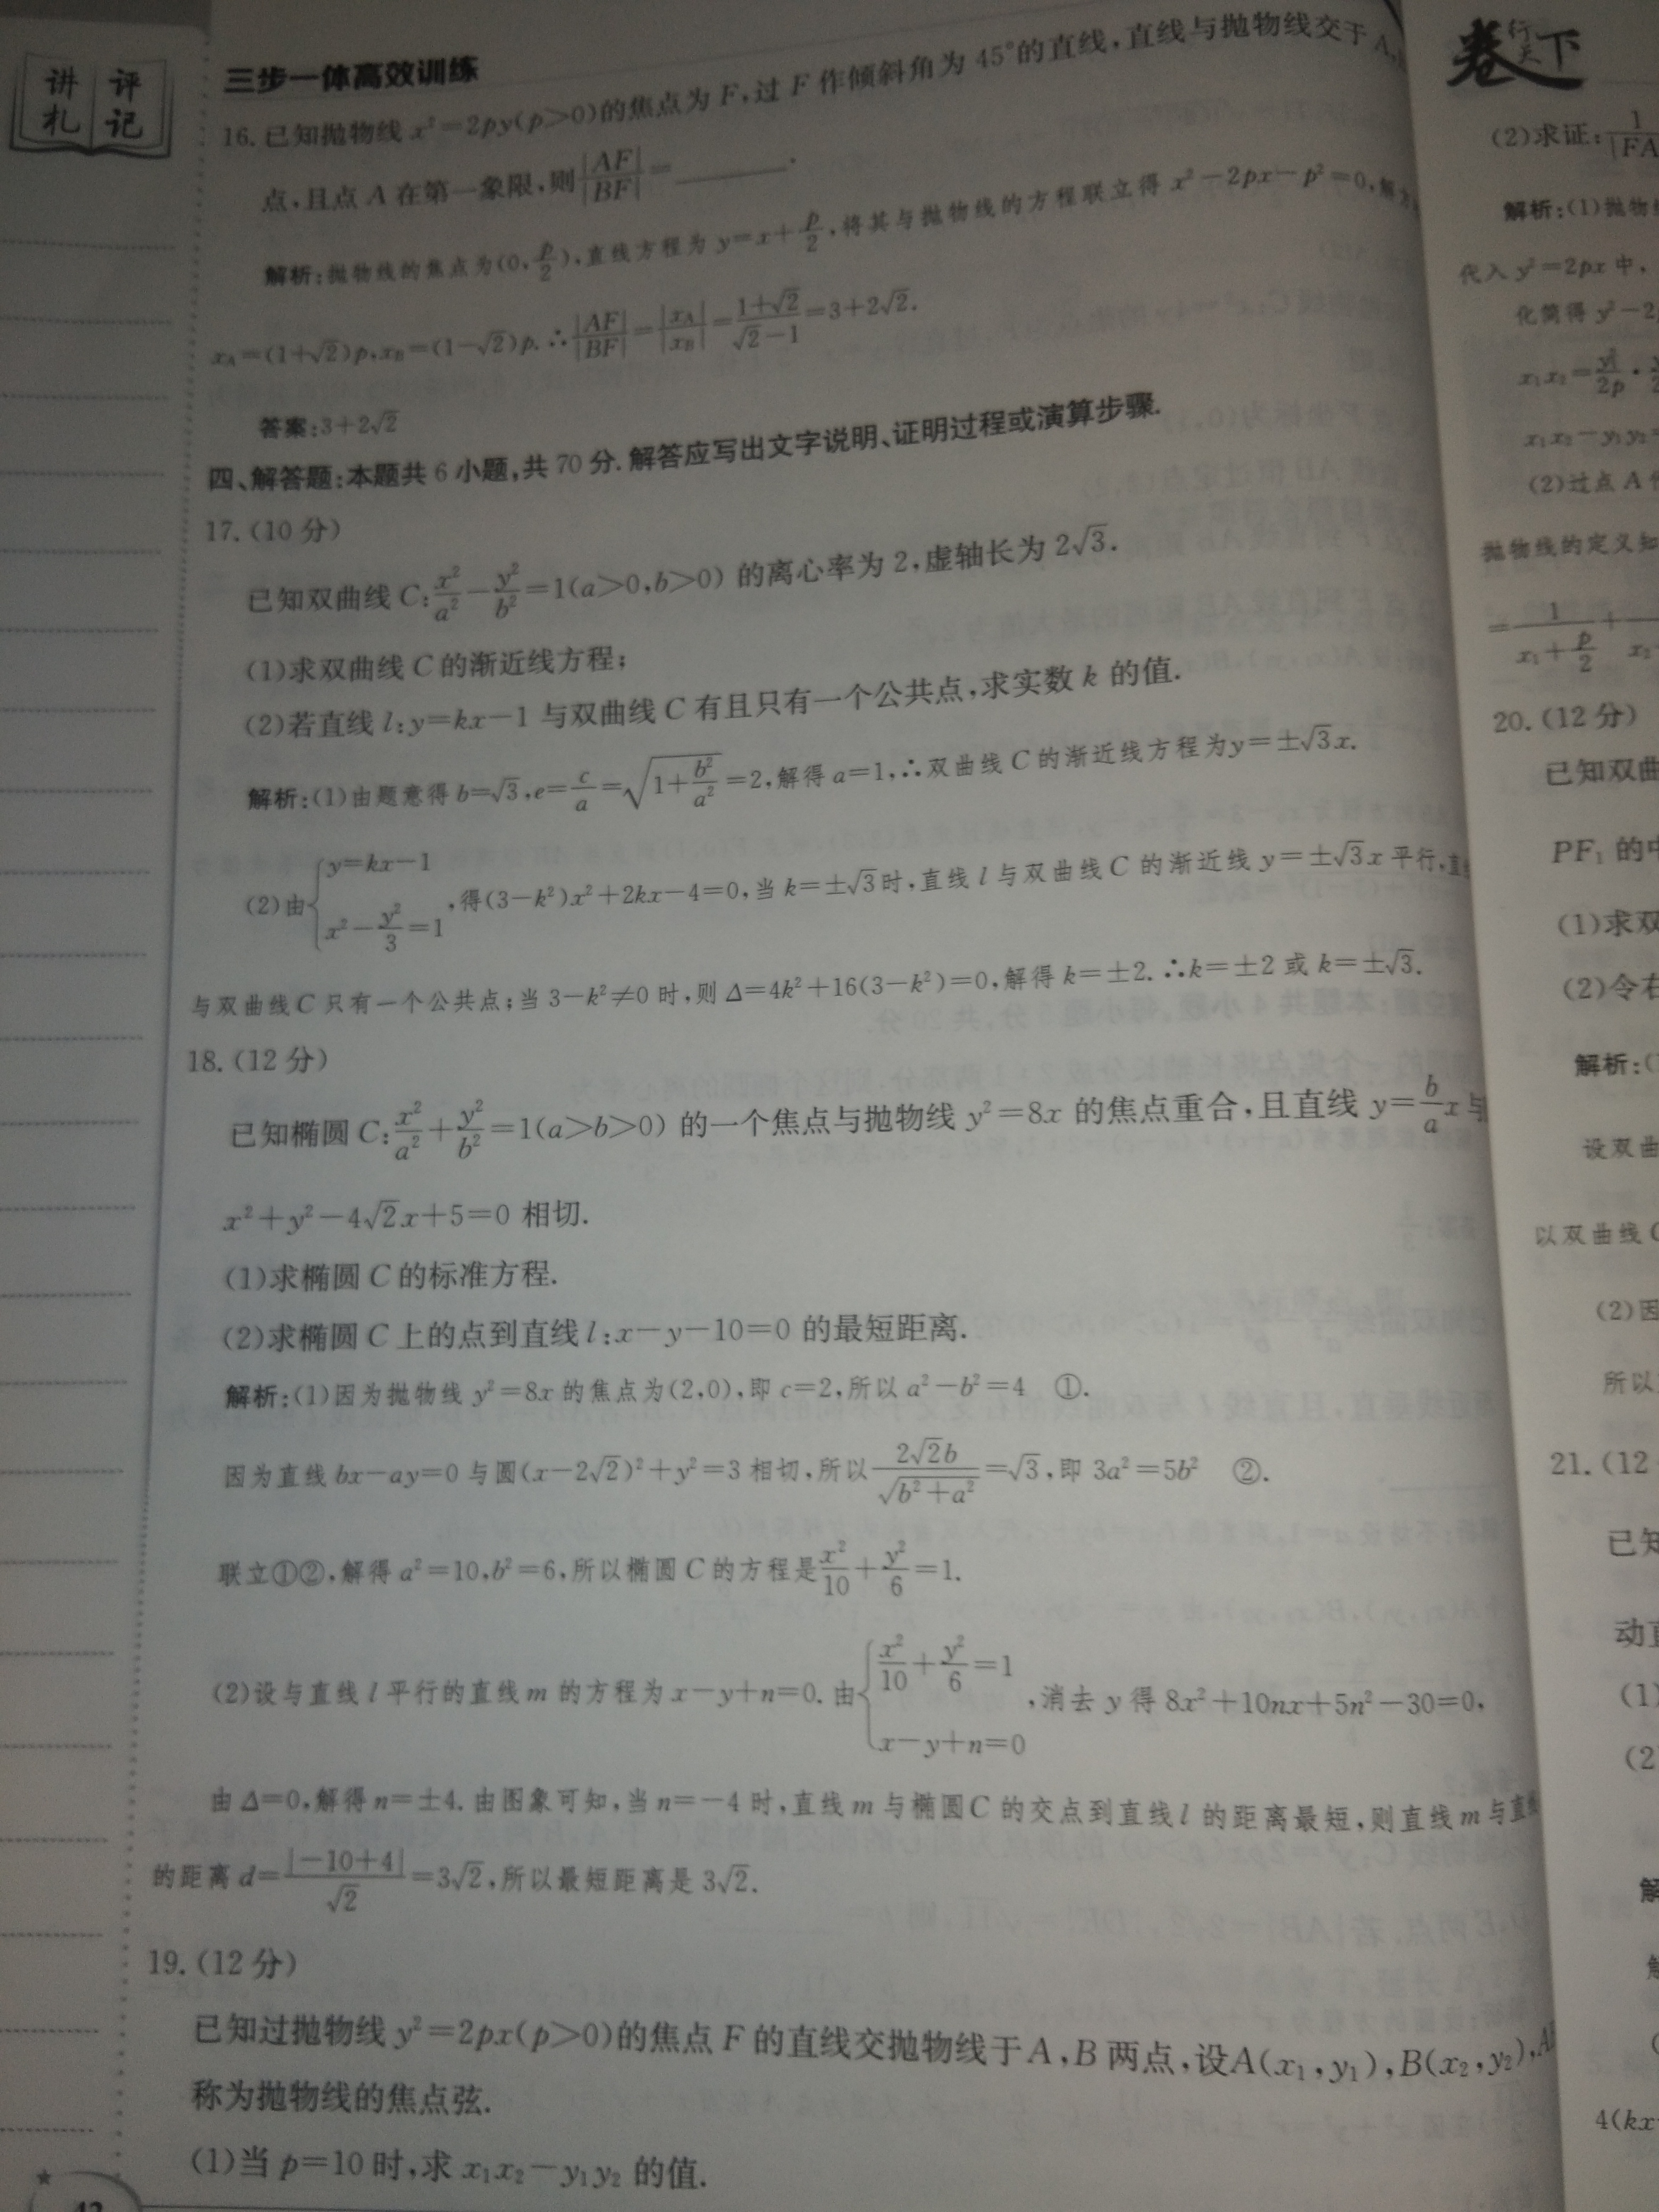 讲 评
札 记
三步一体高效训练
16. 已知抛物线 x²=2py(p>0)的焦点为 F,过 F 作倾斜角为 45°的直线,直线与抛物线交于 A,
点,且点 A 在第一象限,则|AF|/|BF|=________.
解析:抛物线的焦点为(0,p/2),直线方程为 y=x+p/2,将其与抛物线的方程联立得 x²-2px-p²=0,解
x_A=(1+√2)p,x_B=(1-√2)p.∴|AF|/|BF|=|x_A|/|x_B|=(1+√2)/(√2-1)=3+2√2.
答案:3+2√2
四、解答题:本题共 6 小题,共 70 分.解答应写出文字说明、证明过程或演算步骤.
17. (10 分)
已知双曲线 C:x²/a²-y²/b²=1(a>0,b>0) 的离心率为 2,虚轴长为 2√3.
(1)求双曲线 C 的渐近线方程;
(2)若直线 l:y=kx-1 与双曲线 C 有且只有一个公共点,求实数 k 的值.
解析:(1)由题意得 b=√3,e=c/a=√(1+b²/a²)=2,解得 a=1,∴双曲线 C 的渐近线方程为y=±√3x.
(2)由{y=kx-1, x²-y²/3=1,得(3-k²)x²+2kx-4=0,当 k=±√3时,直线 l 与双曲线 C 的渐近线 y=±√3x 平行,直
与双曲线 C 只有一个公共点;当 3-k²≠0 时,则 Δ=4k²+16(3-k²)=0,解得 k=±2.∴k=±2 或 k=±√3.
18. (12 分)
已知椭圆 C:x²/a²+y²/b²=1(a>b>0) 的一个焦点与抛物线 y²=8x 的焦点重合,且直线 y=b/a x 与
x²+y²-4√2x+5=0 相切.
(1)求椭圆 C 的标准方程.
(2)求椭圆 C 上的点到直线 l:x-y-10=0 的最短距离.
解析:(1)因为抛物线 y²=8x 的焦点为(2,0),即 c=2,所以 a²-b²=4 ①.
因为直线 bx-ay=0 与圆(x-2√2)²+y²=3 相切,所以 2√2b/√(b²+a²)=√3,即 3a²=5b² ②.
联立①②,解得 a²=10,b²=6,所以椭圆 C 的方程是x²/10+y²/6=1.
(2)设与直线 l 平行的直线 m 的方程为 x-y+n=0.由{x²/10+y²/6=1, x-y+n=0,消去 y 得 8x²+10nx+5n²-30=0,
由 Δ=0,解得 n=±4.由图象可知,当 n=-4 时,直线 m 与椭圆 C 的交点到直线 l 的距离最短,则直线 m 与直
的距离 d=|-10+4|/√2=3√2,所以最短距离是 3√2.
19. (12 分)
已知过抛物线 y²=2px(p>0)的焦点 F 的直线交抛物线于 A,B 两点,设A(x₁,y₁),B(x₂,y₂),
称为抛物线的焦点弦.
(1)当 p=10 时,求 x₁x₂-y₁y₂ 的值.
卷行天下
(2)求证:1/|FA
解析:(1)抛物
代入 y²=2px 中,
化简得 y²-2
x₁x₂=y₁²/2p·
x₁x₂-y₁y₂
(2)过点 A 作
抛物线的定义知
=1/(x₁+p/2)+
20. (12 分)
已知双曲
PF₁ 的中
(1)求双
(2)令右
解析:(
设双曲
以双曲线 C
(2)因
所以
21. (12
已知
动直
(1)
(2
解
4(kx